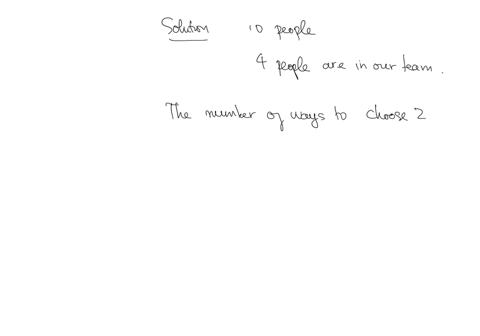 Solution 10 people
4 people are in our team.
The number of ways to choose 2